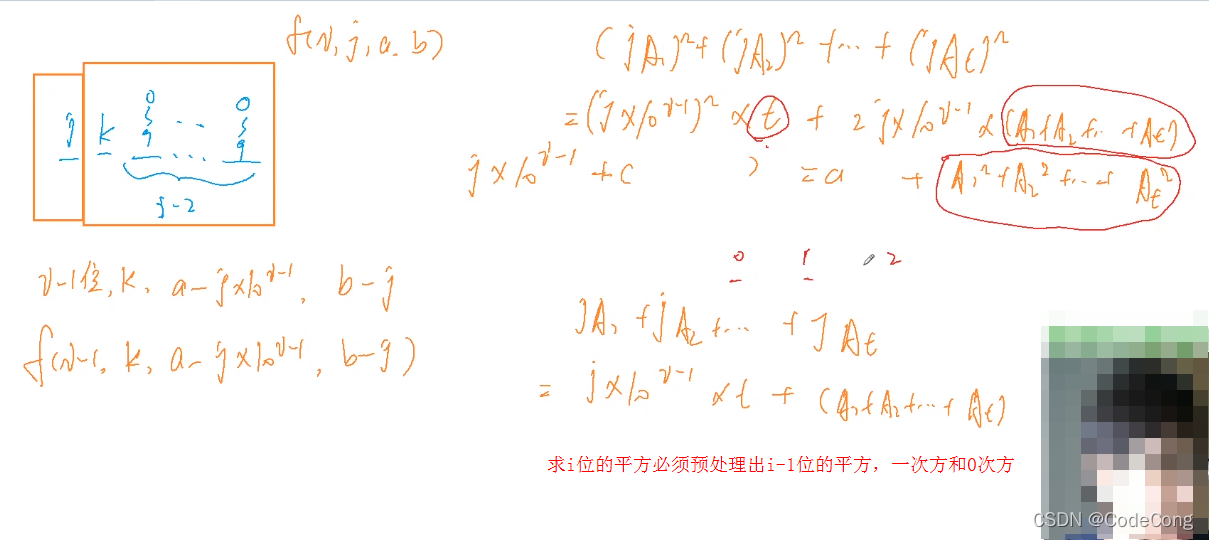 f(i, j, a, b)
j k 0 9 ... 0 9
i-2
i-1位, k, a-j×10^{i-1}, b-j
f(i-1, k, a-j×10^{i-1}, b-j)
(jA₁)²+(jA₂)²+...+(jAt)²
=(j×10^{i-1})²×t + 2j×10^{i-1}×(A₁+A₂+...+At)
j×10^{i-1}+c =a + A₁²+A₂²+...+At²
0 1 2
jA₁+jA₂+...+jAt
=j×10^{i-1}×t+(A₁+A₂+...+At)
求i位的平方必须预处理出i-1位的平方，一次方和0次方
CSDN @CodeCong